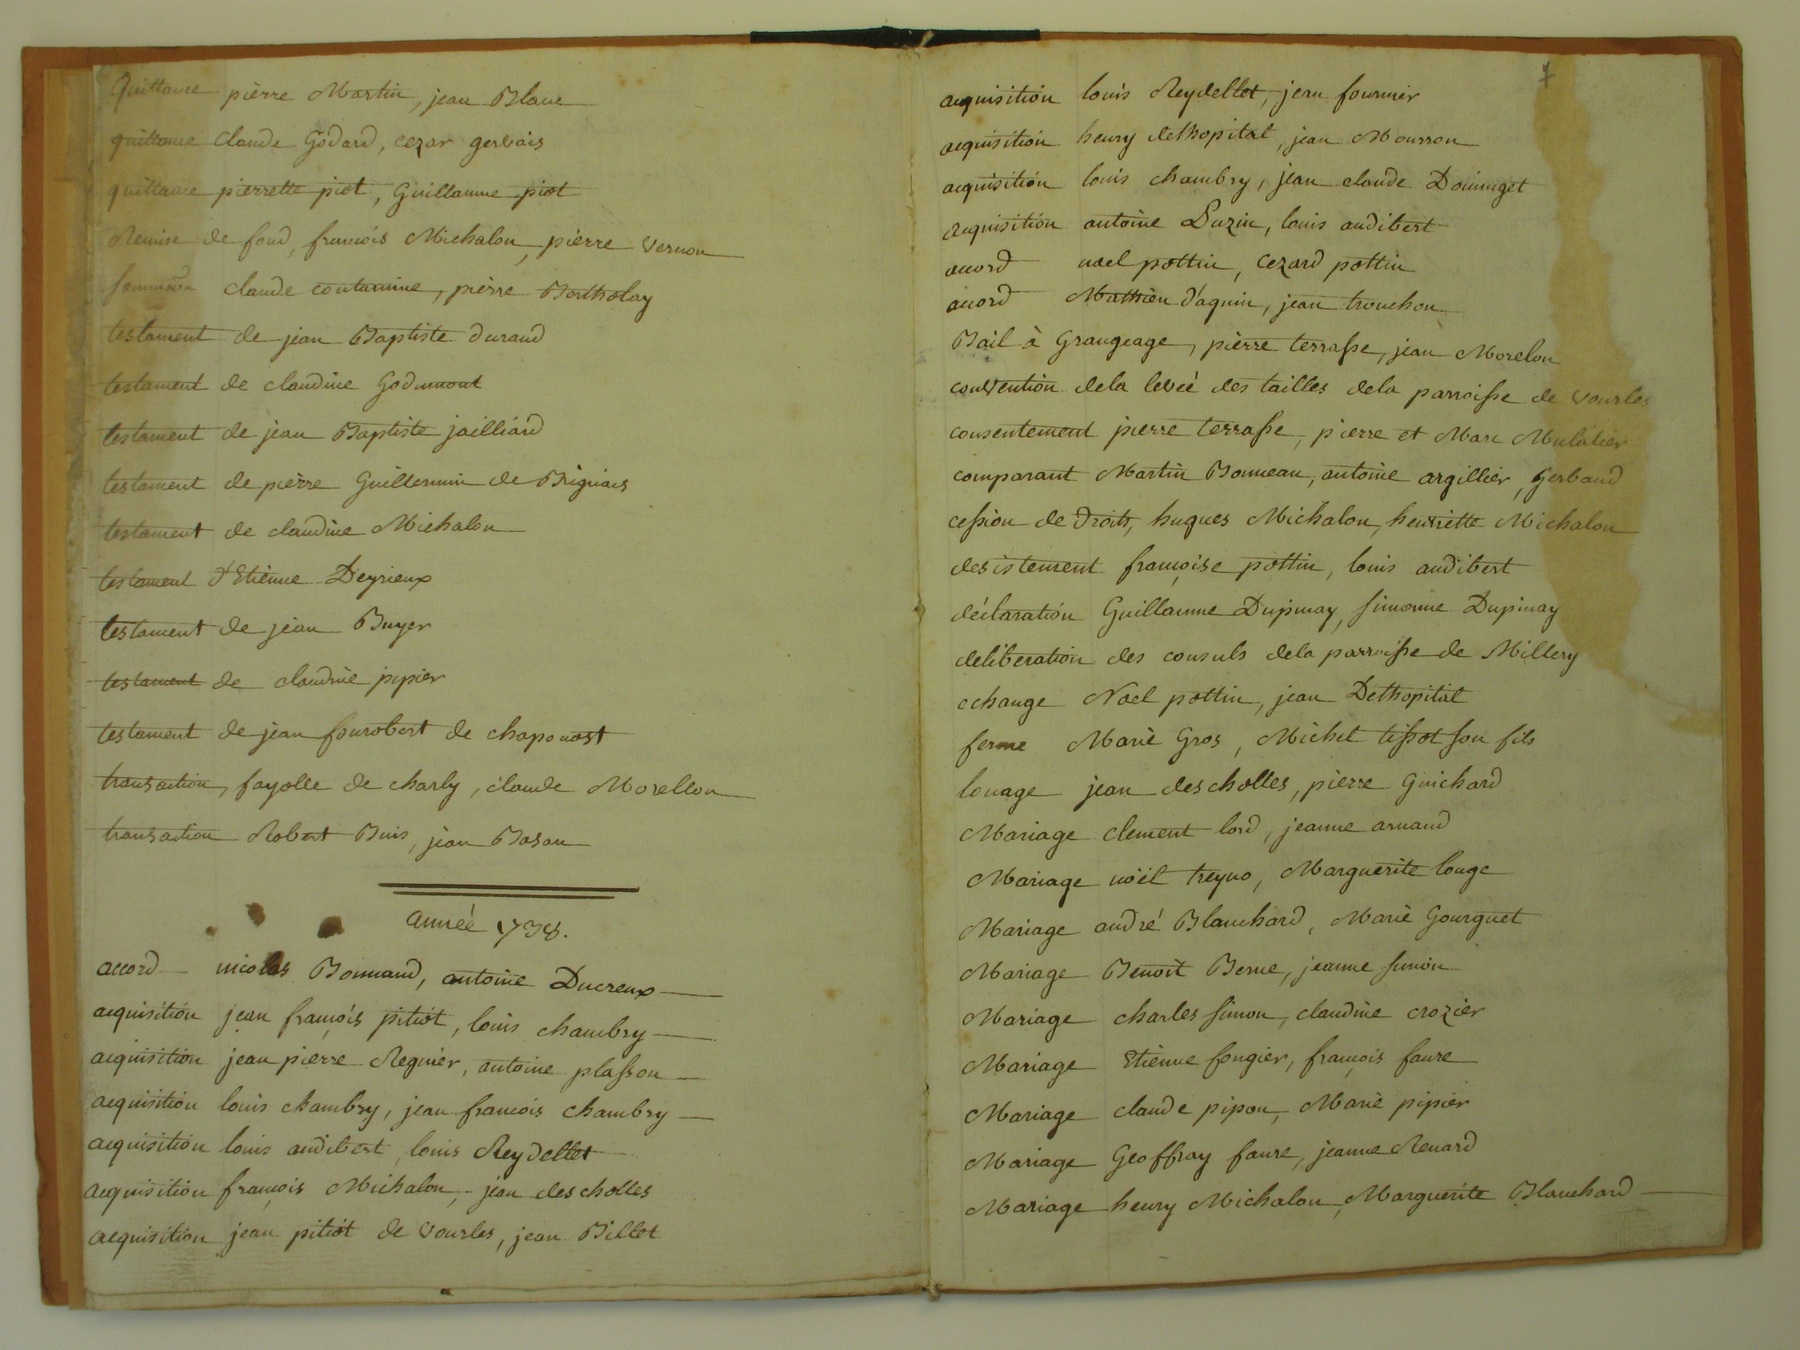 Quittance pierre Martin, jean Blanc
quittance claude Godard, cezar gerbais
quittance pierrette piot, Guillaume piot
Remise de fond, francois Michalon, pierre vernon
claude contamine, pierre Bertholay
testament de jean Baptiste durand
testament de claudine Godumont
testament de jean Baptiste jailliard
testament de pierre Guillermin de Brignais
testament de claudine Michalon
testament d'Etienne Deyrieux
testament de jean Buyer
testament de claudine pipier
testament de jean fourobert de chaponost
transaction, fayolle de charly, claude Morellon
transaction Robert Buis, jean Basan
année 1738.
accord nicolas Bonnand, antoine Ducreux
acquisition jean francois pitiot, louis chambry
acquisition jean pierre Regnier, antoine plasson
acquisition louis chambry, jean francois chambry
acquisition louis audibert, louis Reydellet
acquisition francois Michalon, jean descholles
acquisition jean pitiot de vourles, jean Billet
7
acquisition louis Reydellet, jean fournier
acquisition henry delhopital, jean Mourron
acquisition louis chambry, jean claude
acquisition antoine Luzin, louis audibert
accord noel pottin, cezard pottin
accord Mathieu d'aquin, jean tronchon
Bail à Grangeage, pierre terrasse, jean Morelon
convention dela levée des tailles dela parroisse de vourles
consentement pierre terrasse, pierre et Marc Mulatier
comparant Martin Bonneau, antoine argillier, Gerbaud
cession de droits, hugues Michalon, henriette Michalon
desistement françoise pottin, louis audibert
déclaration Guillaume Dupinay, simonne Dupinay
deliberation des consuls dela parroisse de Millery
echange Noel pottin, jean Delhopital
ferme Marie Gros, Michel tissot son fils
louage jean descholles, pierre Guichard
Mariage clement lord, jeanne arnaud
Mariage noël treyvo, Marguerite louge
Mariage andré Blanchard, Marie Gourguet
Mariage Benoit Berne, jeanne simon
Mariage charles simon, claudine crozier
Mariage Etienne fongier, francois faure
Mariage claude pipon, Marie pipier
Mariage Geoffray faure, jeanne Renard
Mariage henry Michalon, Marguerite Blanchard